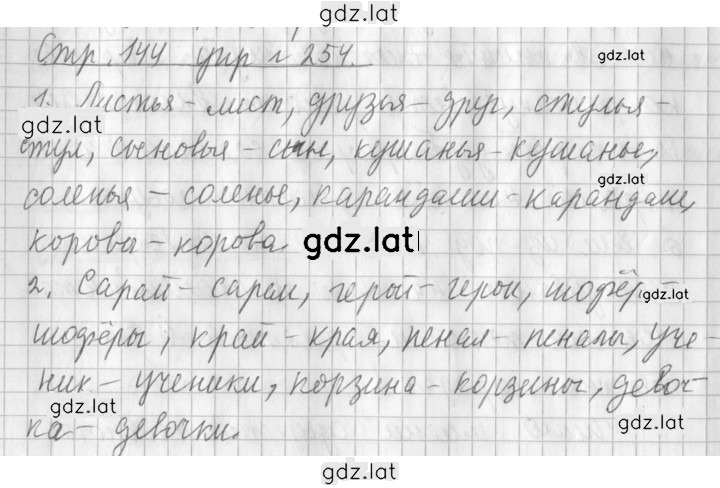 gdz.lat
Стр. 144 упр. 254.
gdz.lat
1. Листья - лист, друзья - друг, стулья -
gdz.lat
стул, сыновья - сын, кушанья - кушанье,
gdz.lat
соленья - соленье, карандаши - карандаш,
коровы - корова.
gdz.lat
2. Сарай - сараи, герой - герои, шофёр -
gdz.lat
шофёры, край - края, пенал - пеналы, уче-
ник - ученики, корзина - корзины, девоч-
gdz.lat
ка - девочки.
gdz.lat
gdz.lat